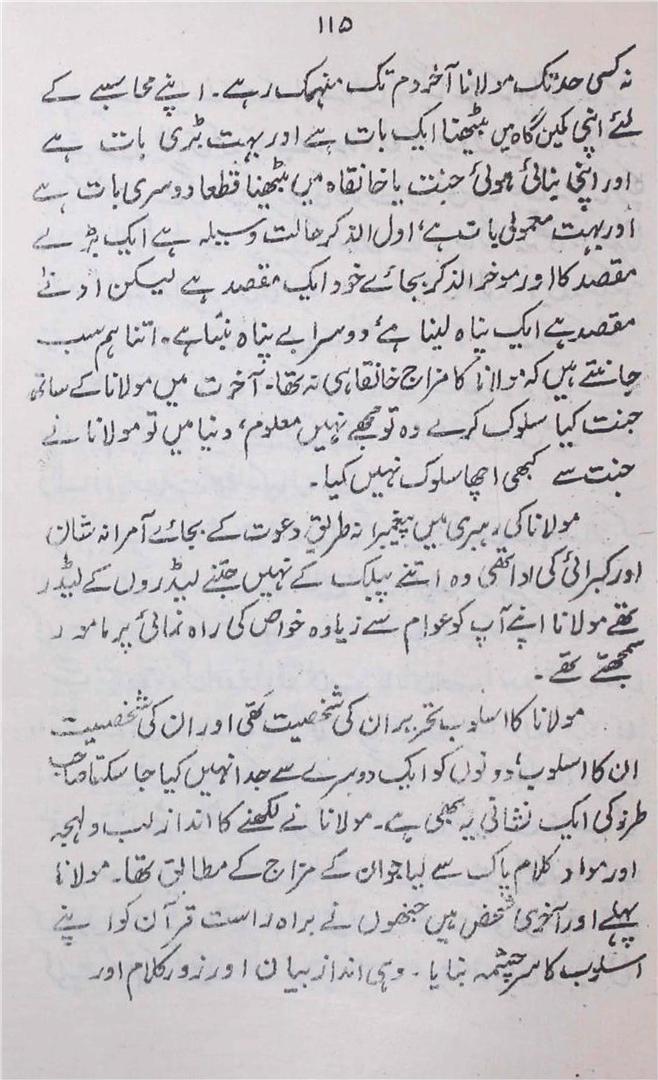 ۱۱۵
نہ کسی حد تک مولانا آخر دم تک منہمک رہے۔ اپنے محاسبے کے
لئے اپنی کمین گاہ میں بیٹھنا ایک بات ہے اور بہت بڑی بات ہے
اور اپنی بنائی ہوئی جنت یا خانقاہ میں بیٹھنا قطعا دوسری بات ہے
اور بہت معمولی بات ہے، اول الذکر حالت وسیلہ ہے ایک بڑے
مقصد کا اور موخر الذکر بجائے خود ایک مقصد ہے لیکن ادنےٰ
مقصد ہے ایک پناہ لینا ہے، دوسرا بے پناہ بنتا ہے۔ اتنا ہم سب
جانتے ہیں کہ مولانا کا مزاج خانقاہی نہ تھا۔ آخرت میں مولانا کے ساتھ
جنت کیا سلوک کرے وہ تو مجھے نہیں معلوم، دنیا میں تو مولانا نے
جنت سے کبھی اچھا سلوک نہیں کیا۔
مولانا کی رہبری میں پیغمبرانہ طریقِ دعوت کے بجائے آمرانہ شان
اور کبرائی کی ادا تھی وہ اتنے پبلک کے نہیں جتنے لیڈروں کے لیڈر
تھے مولانا اپنے آپ کو عوام سے زیادہ خواص کی راہ نمائی پر مامور
سمجھتے تھے۔
مولانا کا اسلوب تحریر ان کی شخصیت تھی اور ان کی شخصیت
ان کا اسلوب، دونوں کو ایک دوسرے سے جدا نہیں کیا جا سکتا صاحب
طرز کی ایک نشانی یہ بھی ہے۔ مولانا نے لکھنے کا انداز لب و لہجہ
اور مواد کلام پاک سے لیا جو ان کے مزاج کے مطابق تھا۔ مولانا
پہلے اور آخری شخص ہیں جنھوں نے براہ راست قرآن کو اپنے
اسلوب کا سرچشمہ بنایا۔ وہی انداز بیان اور زور کلام اور